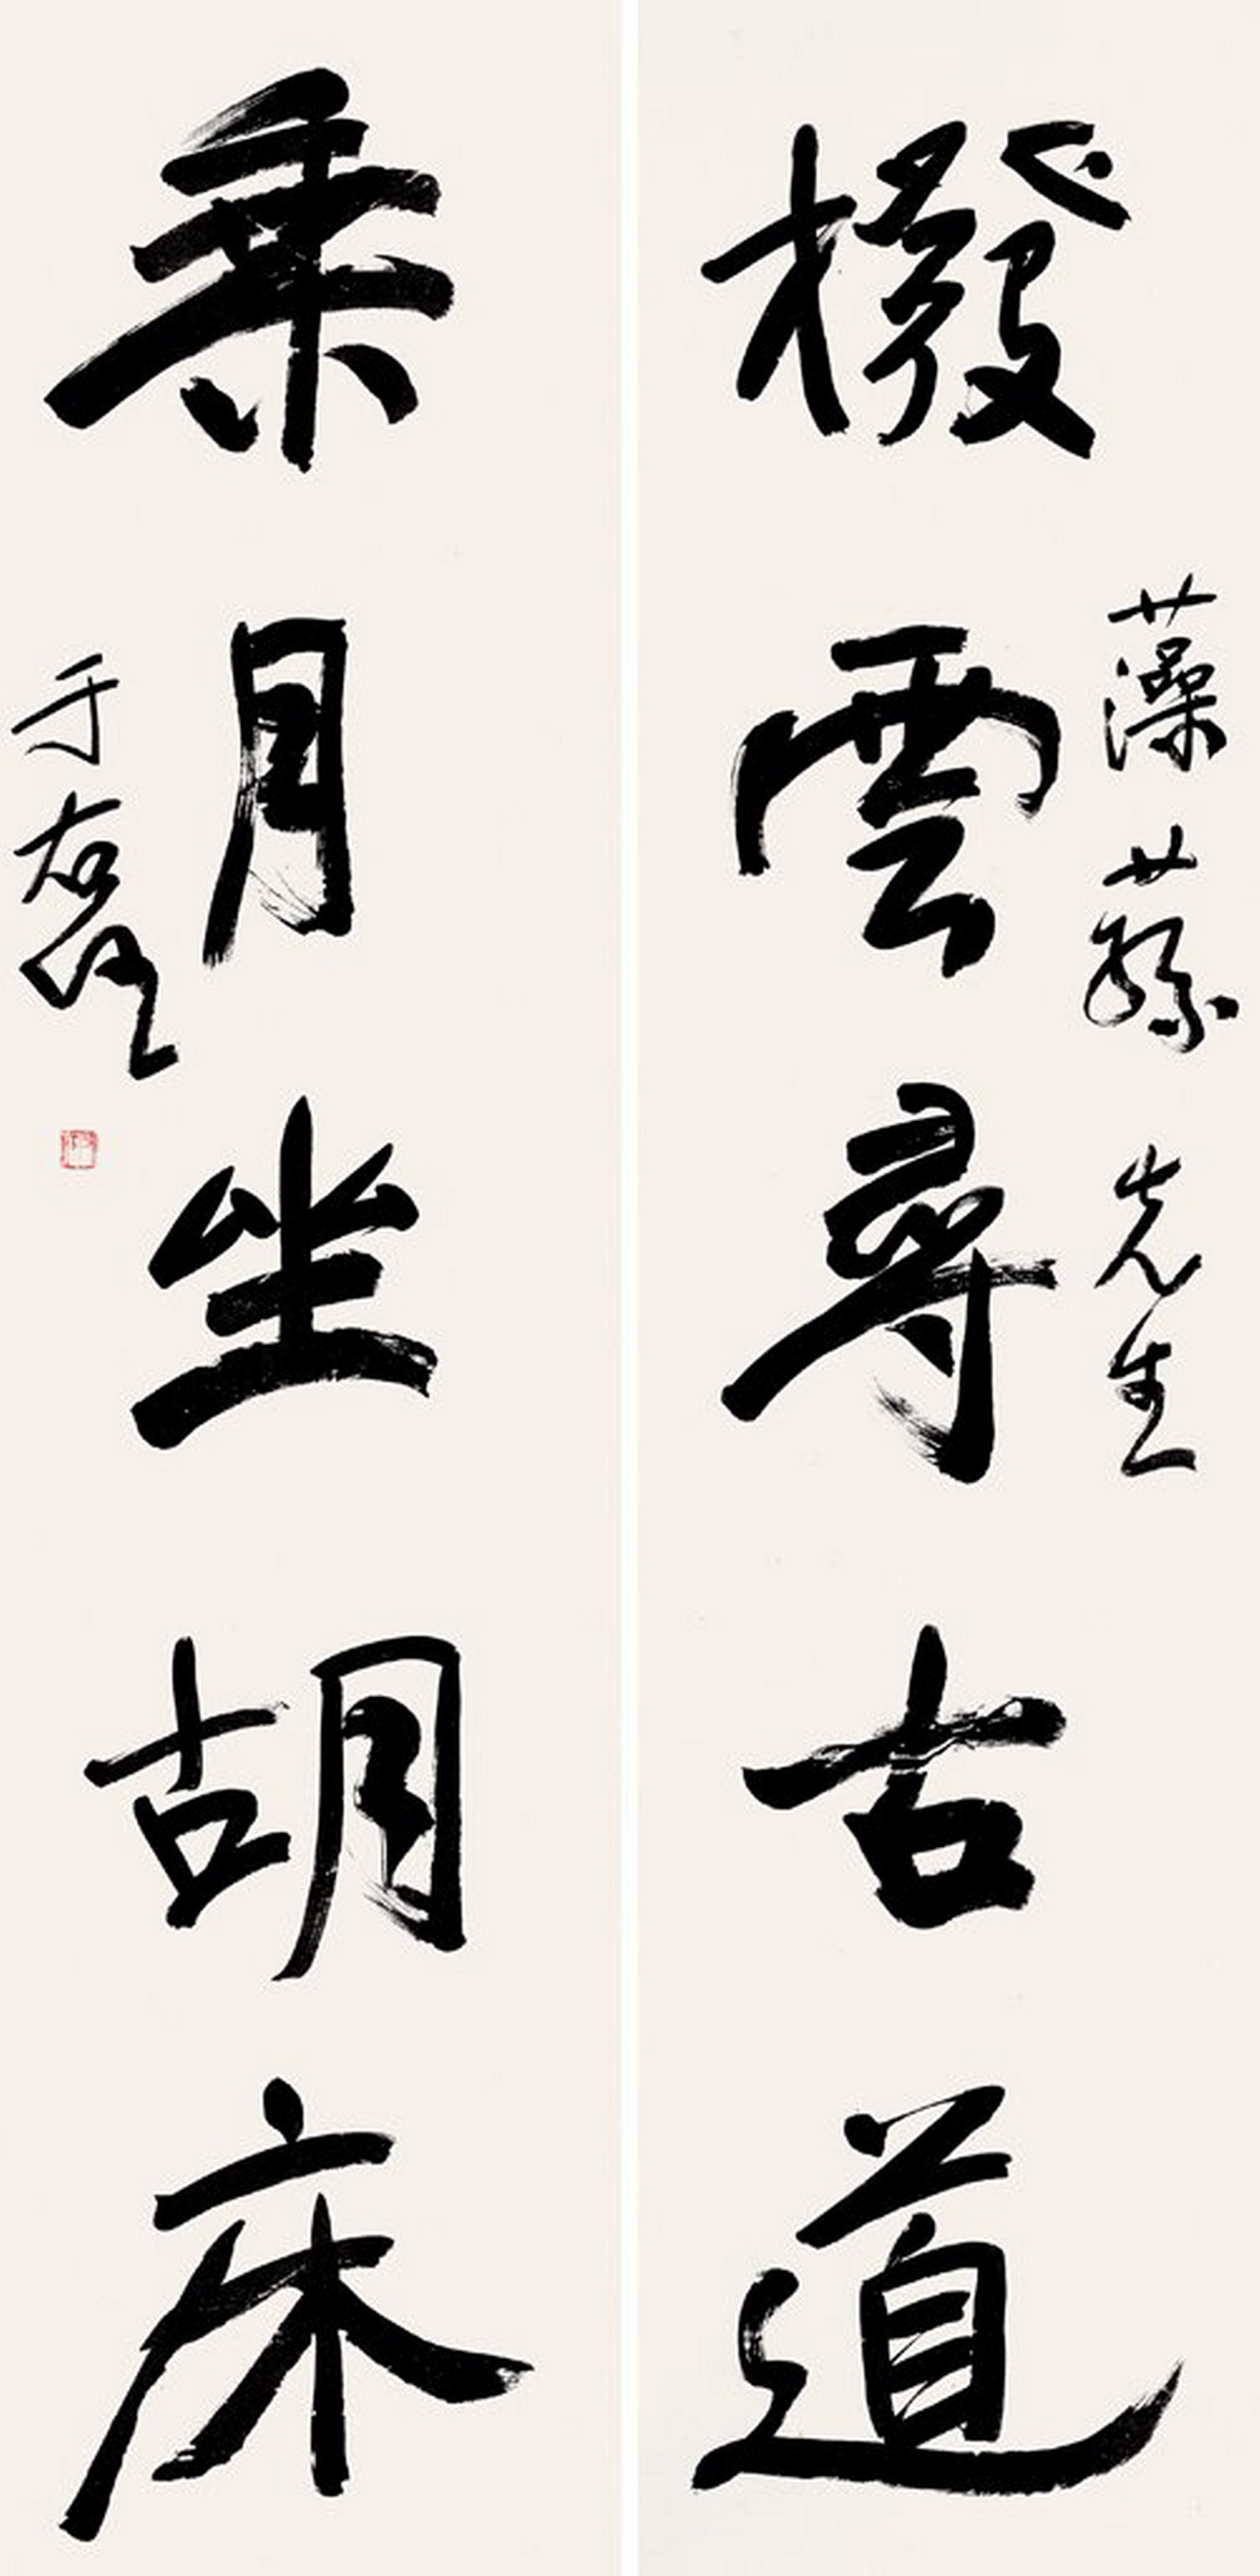 藻蓀先生
撥雲尋古道
乘月坐胡床
于右任